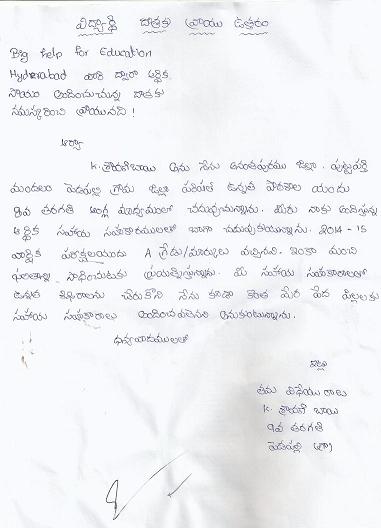 విద్యార్థి దాతకు వ్రాయు ఉత్తరం
Big help for Education
Hyderabad వారి ద్వారా ఆర్థిక
సాయం అందించుచున్న దాతకు
నమస్కరించి వ్రాయునది!
ఆర్యా
K. శ్రావణి బాయి అను నేను అనంతపురము జిల్లా. పుట్టపర్తి
మండలం పెడపల్లి గ్రామ జిల్లా పరిషత్ ఉన్నత పాఠశాల యందు
9వ తరగతి ఆంగ్ల మాధ్యమంలో చదువుచున్నాను. మీరు నాకు అందిస్తున్న
ఆర్థిక సహాయ సహకారములతో బాగా చదువుకుంటున్నాను. 2014 - 15
వార్షిక పరీక్షలయందు A గ్రేడు/మార్కులు వచ్చినవి. ఇంకా మంచి
ఫలితాన్ని సాధించుటకు ప్రయత్నిస్తున్నాను. మీ సహాయ సహకారాలతో
ఉన్నత శిఖరాలను చేరుకొని నేను కూడా కొంత మేర పేద పిల్లలకు
సహాయ సహకారాలు అందించవలెనని అనుకుంటున్నాను.
ధన్యవాదములతో
ఇట్లు
తమ విధేయురాలు
K. శ్రావణి బాయి
9వ తరగతి
పెడపల్లి (గ్రా)